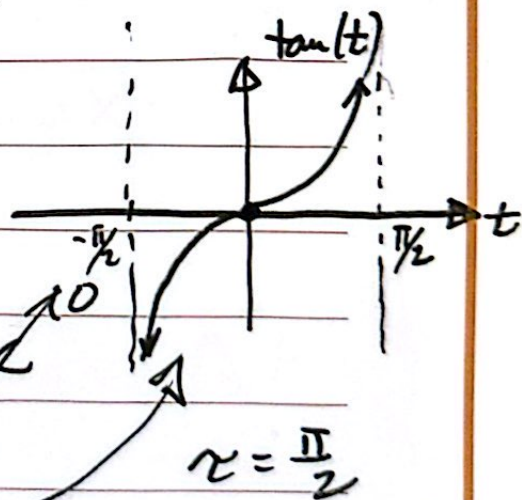 tan(t)
t
-π/2 π/2
0
τ = π/2